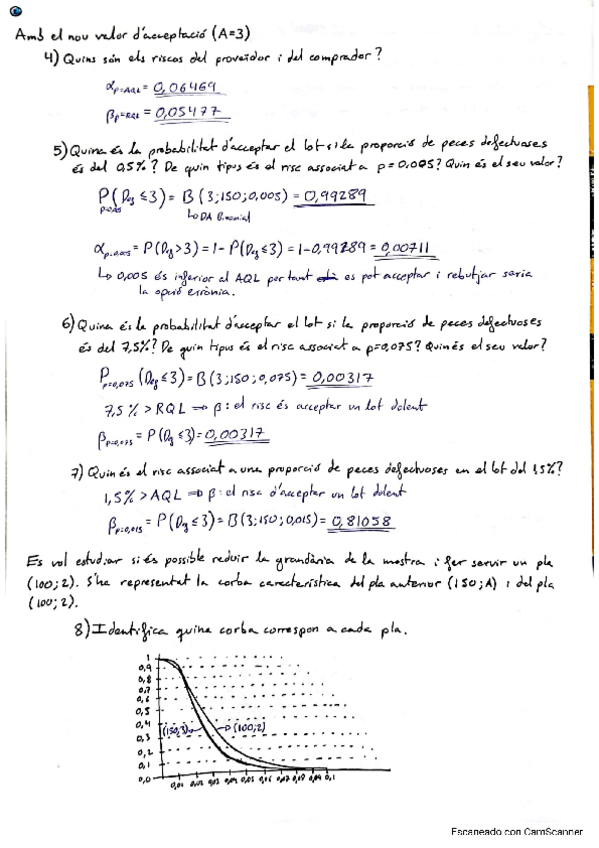 Amb el nou valor d'acceptació (A=3)
4) Quins són els riscos del proveïdor i del comprador?
α p=AQL = 0,06469
β p=RQL = 0,05477
5) Quina és la probabilitat d'acceptar el lot si la proporció de peces defectuoses
és del 0,5%? De quin tipus és el risc associat a p=0,005? Quin és el seu valor?
P(Deg ≤ 3) = B(3;150;0,005) = 0,99289
↳ DA Binomial
α p=0.005 = P(Deg>3) = 1- P(Deg≤3) = 1-0,99289 = 0,00711
↳ 0,005 és inferior al AQL per tant es pot acceptar i rebutjar seria
la opció errònia.
6) Quina és la probabilitat d'acceptar el lot si la proporció de peces defectuoses
és del 7,5%? De quin tipus és el risc associat a p=0,075? Quin és el seu valor?
P p=0,075 (Deg ≤3) = B(3;150;0,075) = 0,00317
7,5% > RQL ⇒ β: el risc és acceptar un lot dolent
β p=0,075 = P(Deg ≤3) = 0,00317
7) Quin és el risc associat a una proporció de peces defectuoses en el lot del 1,5%?
1,5% > AQL ⇒ β: el risc d'acceptar un lot dolent
β p=0,015 = P(Deg ≤3) = B(3;150;0,015) = 0,81058
Es vol estudiar si és possible reduir la grandària de la mostra i fer servir un pla
(100;2). S'ha representat la corba característica del pla anterior (150;A) i del pla
(100;2).
8) Identifica quina corba correspon a cada pla.
1
0,9
0,8
0,7
0,6
0,5
0,4
0,3
0,2
0,1
0,0
(150,3)
(100;2)
0,01 0,02 0,03 0,04 0,05 0,06 0,07 0,08 0,09 0,1
Escaneado con CamScanner